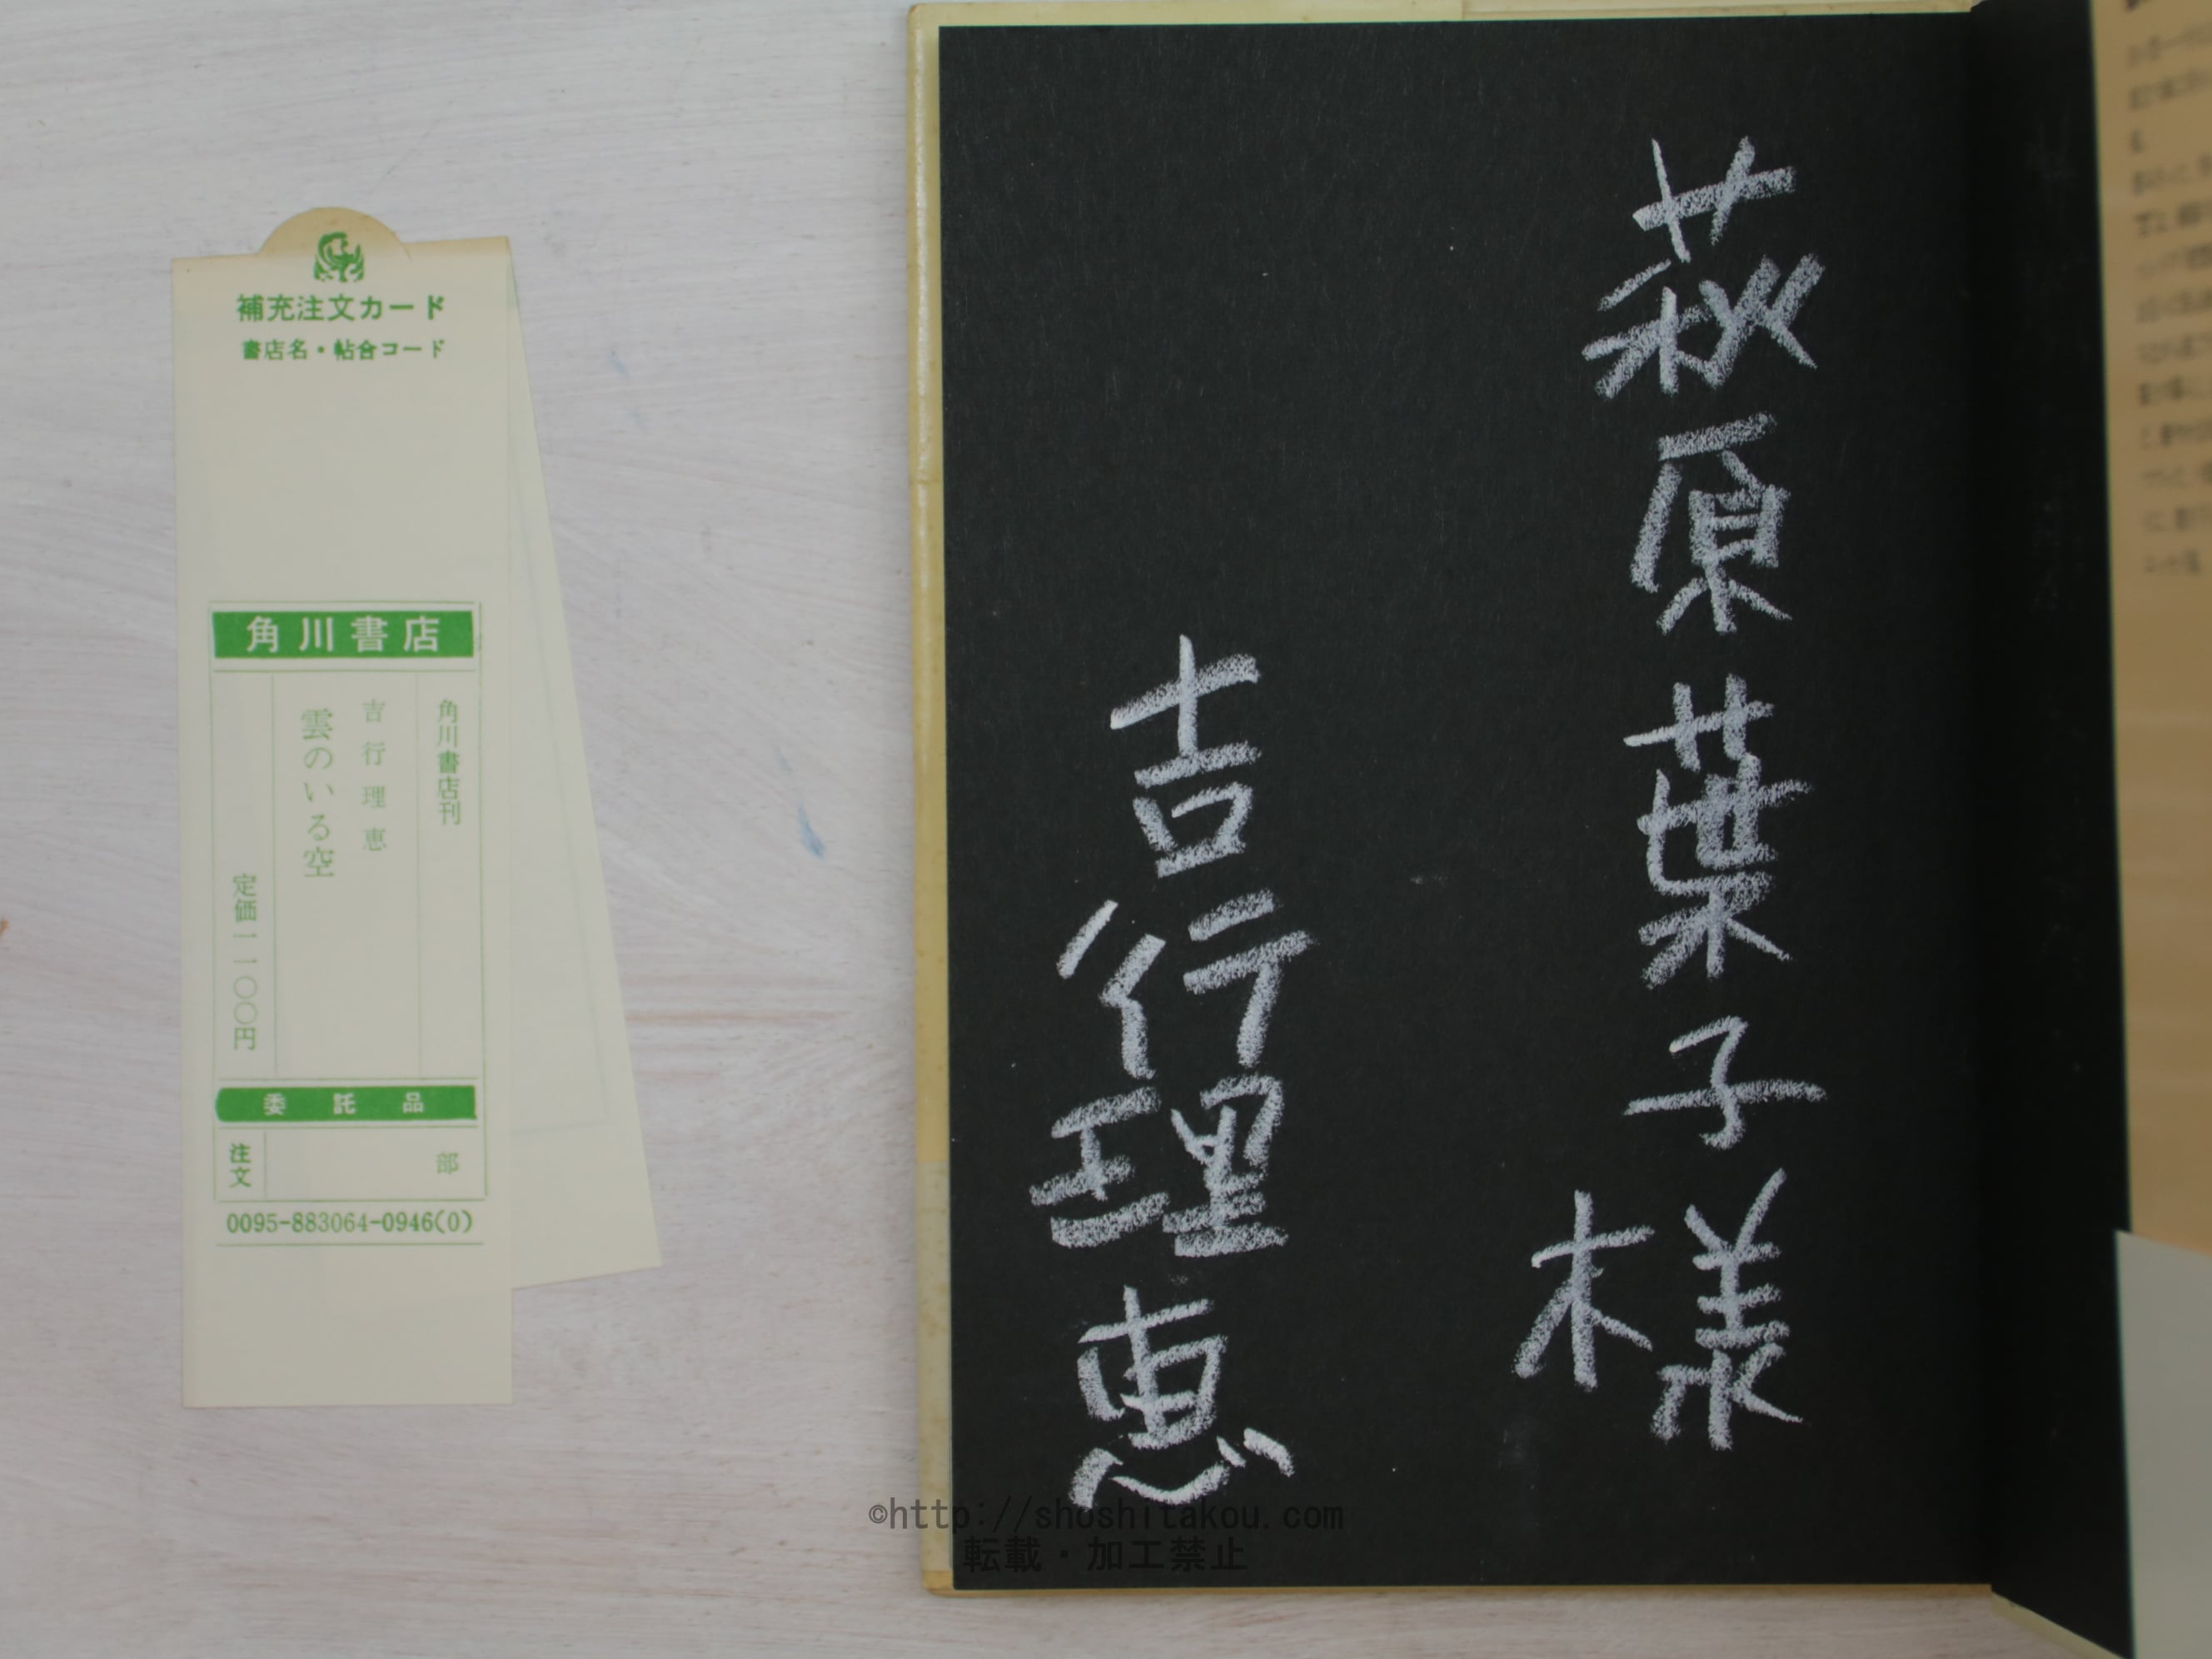 補充注文カード
書店名・帖合コード
角川書店
角川書店刊
吉行理恵
雲のいる空
定価一一〇〇円
委託品
注文
部
0095-883064-0946(0)
萩原葉子様
吉行理恵
©http://shoshitakou.com
転載・加工禁止